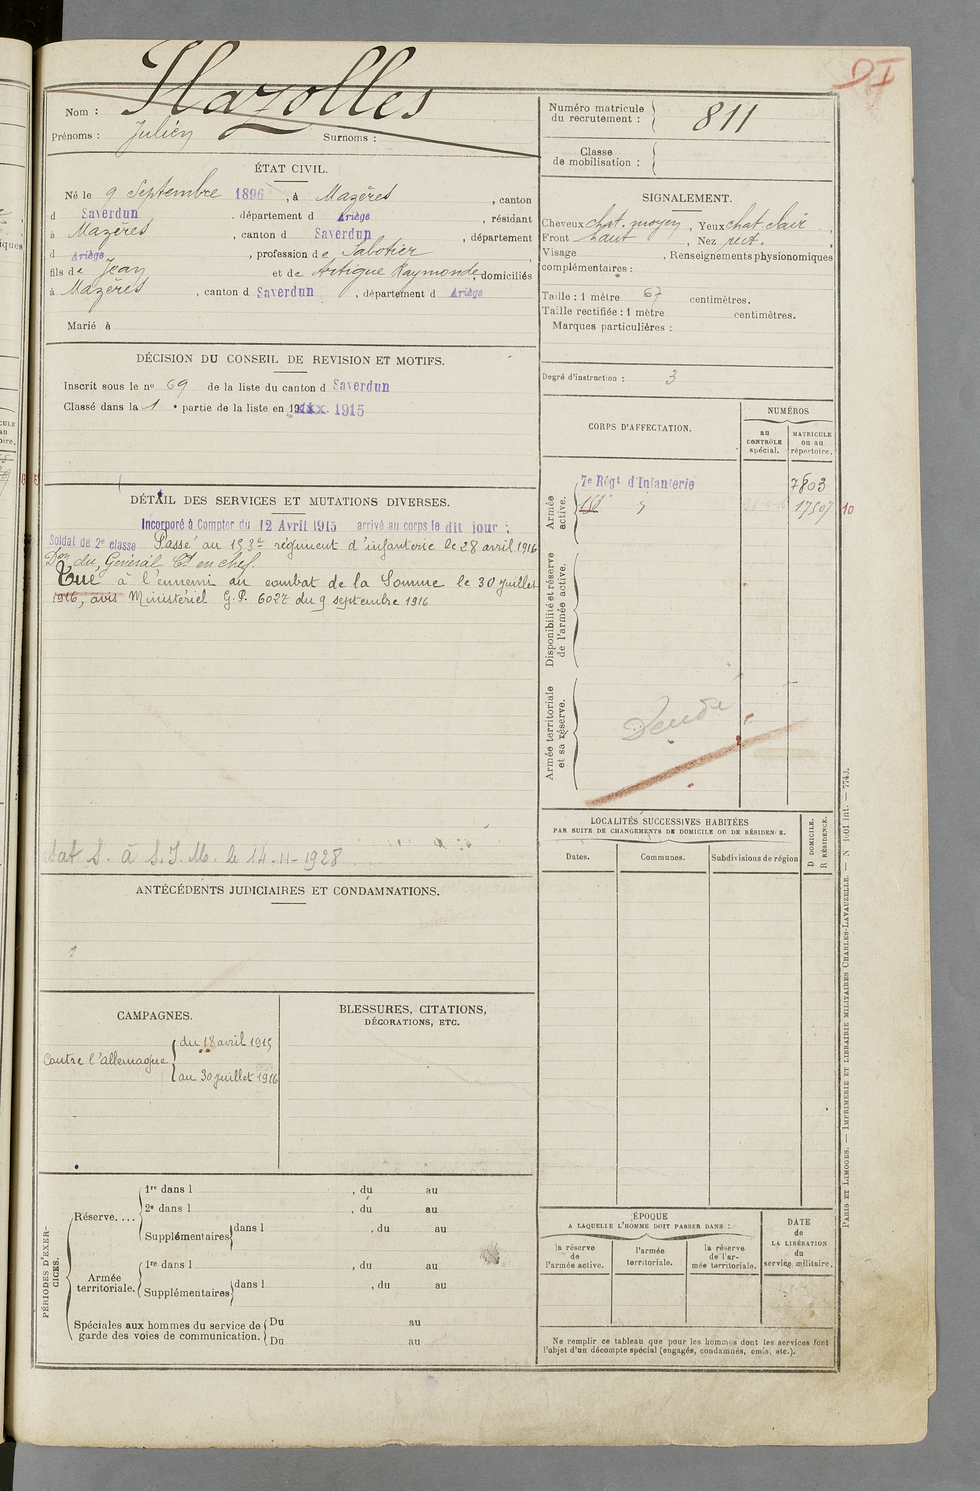 DI
Nom : Hazolles
Prénoms : Julien Surnoms :
Numéro matricule
du recrutement : 811
Classe
de mobilisation :
ÉTAT CIVIL.
Né le 9 Septembre 1896, à Mazères, canton
d Saverdun, département d Ariège, résidant
à Mazères, canton d Saverdun, département
d Ariège, profession de Sabotier
fils de Jean et de Artigue Raymonde, domiciliés
à Mazères, canton d Saverdun, département d Ariège
Marié à
SIGNALEMENT.
Cheveux chat. moyen, Yeux chat. clair
Front haut, Nez rect.
Visage , Renseignements physionomiques
complémentaires :
Taille : 1 mètre 67 centimètres.
Taille rectifiée : 1 mètre centimètres.
Marques particulières :
Degré d'instruction : 3
DÉCISION DU CONSEIL DE REVISION ET MOTIFS.
Inscrit sous le nº 69 de la liste du canton d Saverdun
Classé dans la 1 e partie de la liste en 1915
DÉTAIL DES SERVICES ET MUTATIONS DIVERSES.
Incorporé à Compter du 12 Avril 1915 arrivé au corps le dit jour :
Soldat de 2e classe Passé au 153e régiment d'infanterie le 28 avril 1916
Don du Général Ct en chef.
Tué à l'ennemi au combat de la Somme le 30 juillet
1916, avis Ministériel G.P. 6027 du 9 septembre 1916
S. à S.I.M. le 14-11-1928
CORPS D'AFFECTATION.
NUMÉROS
au
CONTRÔLE
spécial.
MATRICULE
ou au
répertoire.
Armée
active.
7e Régt d'Infanterie 7803
153 17507 10
Disponibilité et réserve
de l'armée active.
Armée territoriale
et sa réserve.
LOCALITÉS SUCCESSIVES HABITÉES
PAR SUITE DE CHANGEMENTS DE DOMICILE OU DE RÉSIDENCE.
D DOMICILE.
R RÉSIDENCE.
Dates. Communes. Subdivisions de région
ANTÉCÉDENTS JUDICIAIRES ET CONDAMNATIONS.
CAMPAGNES.
Contre l'allemagne
du 18 avril 1915
au 30 juillet 1916
BLESSURES, CITATIONS,
DÉCORATIONS, ETC.
PÉRIODES D'EXER-
CICES.
Réserve....
1re dans l , du au
2e dans l , du au
Supplémentaires dans l , du au
Armée
territoriale.
1re dans l , du au
Supplémentaires dans l , du au
Spéciales aux hommes du service de
garde des voies de communication.
Du au
Du au
ÉPOQUE
A LAQUELLE L'HOMME DOIT PASSER DANS :
la réserve
de
l'armée active.
l'armée
territoriale.
la réserve
de l'ar-
mée territoriale.
DATE
de
LA LIBÉRATION
du
service militaire.
Ne remplir ce tableau que pour les hommes dont les services font
l'objet d'un décompte spécial (engagés, condamnés, omis, etc.).
PARIS ET LIMOGES. — IMPRIMERIE ET LIBRAIRIE MILITAIRES CHARLES-LAVAUZELLE. — N° 1001 int. — 7743.